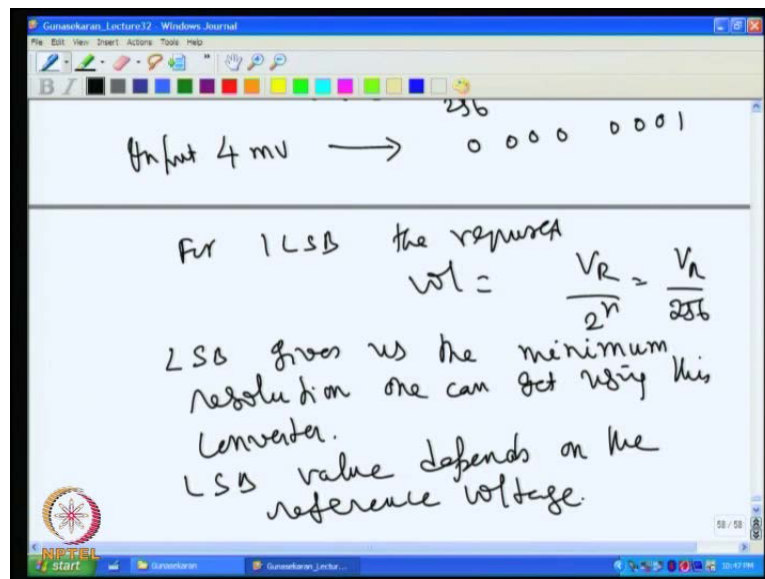 Gunasekaran_Lecture32 - Windows Journal
File Edit View Insert Actions Tools Help
B I
256
Input 4 mv → 0 0 0 0 0 0 0 1
For 1 LSB the
Vol = V_R / 2^n = V_R / 256
LSB gives us the minimum
resolution one can get using this
Converter.
LSB value depends on the
reference voltage.
58 / 58
NPTEL
start Gunasekaran Gunasekaran_Lectur... 10:47 PM